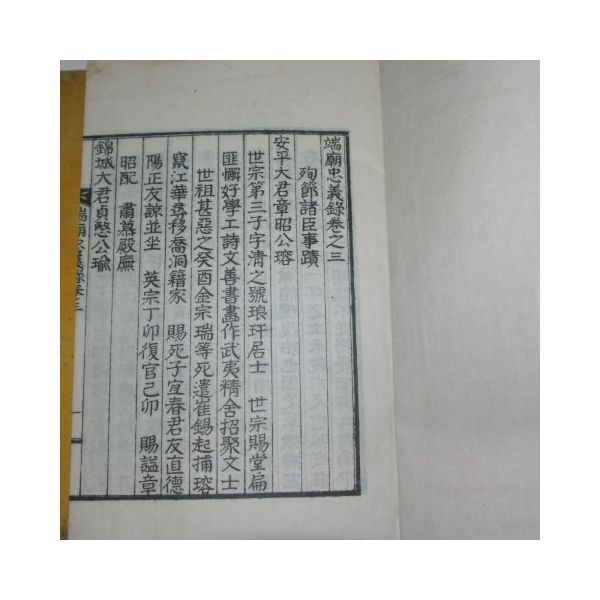 端廟忠義錄卷之三
殉節諸臣事蹟
安平大君章昭公瑢
世宗第三子字清之號琅玕居士 世宗賜堂扁
匪懈好學工詩文善書畵作武夷精舍招聚文士
世祖甚惡之癸酉金宗瑞等死遣崔錫起捕瑢
竄江華尋移喬洞籍家 賜死子宜春君友直德
陽正友諒並坐 英宗丁卯復官己卯 賜謚章
昭配 肅慕殿廡
錦城大君貞愍公瑜
端廟忠義錄卷三